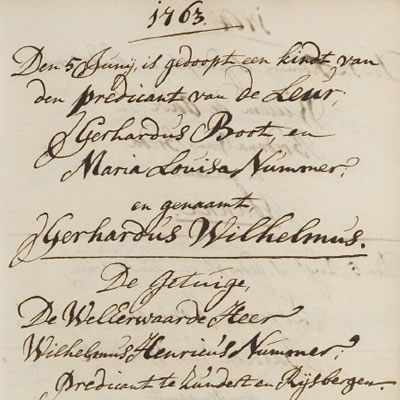 1763.
Den 5 Junij, is gedoopt een kindt van
den predicant van de Leur,
Gerhardus Boot, en
Maria Louisa Nummer,
en genaamt
Gerhardus Wilhelmus.
De Getuige,
De WelEerwaarde Heer
Wilhelmus Henricus Nummer,
Predicant te Zundert en Rijsbergen.